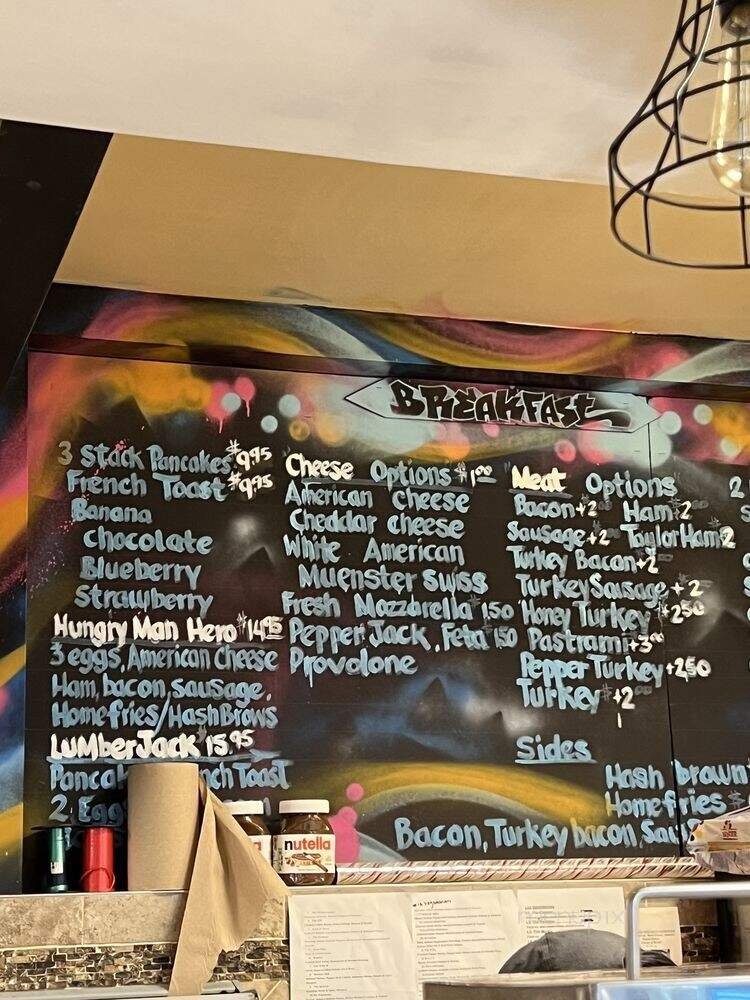 BREAKFAST
3 Stack Pancakes $9.95
French Toast $9.95
Banana
chocolate
Blueberry
Strawberry
Hungry Man Hero $14.95
3 eggs, American cheese
Ham, bacon, sausage,
Homefries/HashBrows
LumberJack $15.95
Pancak nch Toast
2 Egg
Cheese Options $1.00
American cheese
Cheddar cheese
White American
Muenster Swiss
Fresh Mozzarella $1.50
Pepper Jack, Feta $1.50
Provolone
Meat Options
Bacon +2.00 Ham $2.00
Sausage +2.00 Taylor Ham 2
Turkey Bacon +2
Turkey Sausage +2
Honey Turkey $2.50
Pastrami +3.00
Pepper Turkey +2.50
Turkey $+2.00
Sides
Hash brown
Homefries $
Bacon, Turkey bacon, Saus
2
nutella